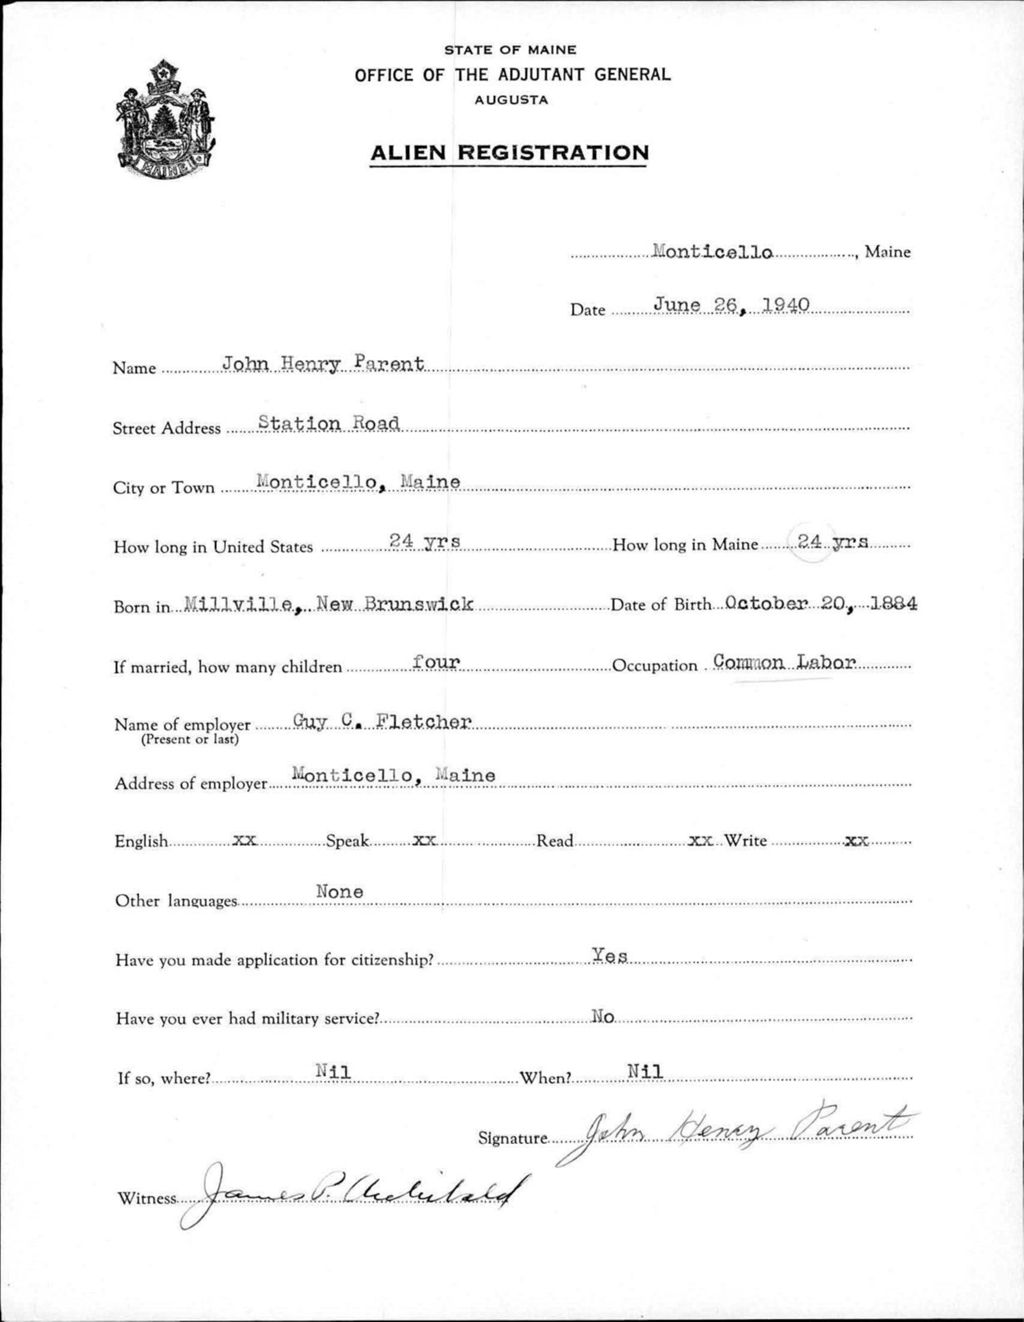 STATE OF MAINE
OFFICE OF THE ADJUTANT GENERAL
AUGUSTA
ALIEN REGISTRATION
MAINE
Monticello, Maine
Date June 26, 1940
Name John Henry Parent
Street Address Station Road
City or Town Monticello, Maine
How long in United States 24 yrs How long in Maine 24 yrs
Born in Millville, New Brunswick Date of Birth October 20, 1884
If married, how many children four Occupation Common Labor
Name of employer Guy C. Fletcher
(Present or last)
Address of employer Monticello, Maine
English xx Speak xx Read xx Write xx
Other languages None
Have you made application for citizenship? Yes
Have you ever had military service? No
If so, where? Nil When? Nil
Signature John Henry Parent
Witness James P. Archibald